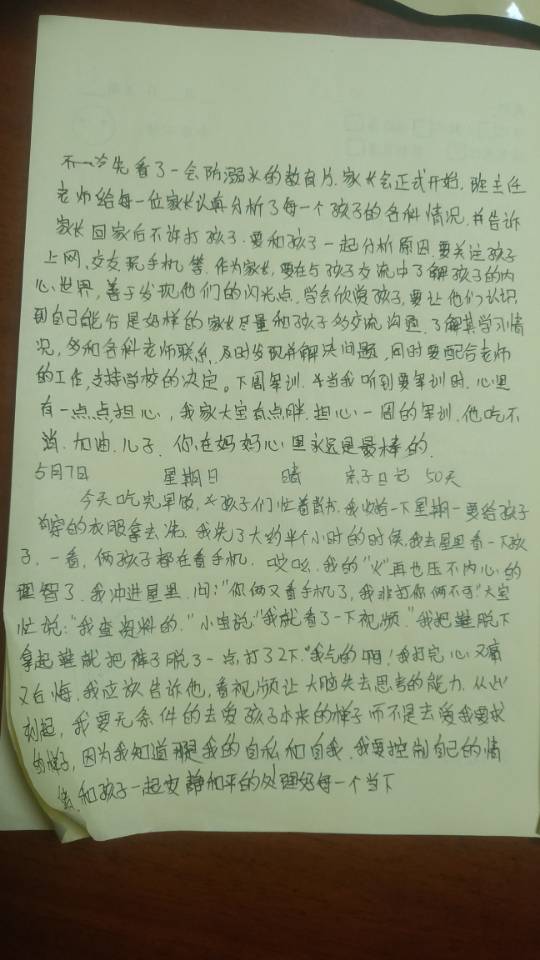 首先看了一会防溺水的教育片. 家长会正式开始. 班主任
老师给每一位家长认真分析了每一个孩子的各科情况. 并告诉
家长回家后不许打孩子. 要和孩子一起分析原因. 要关注孩子
上网, 交友, 玩手机等. 作为家长, 要在与孩子交流中了解孩子的内
心世界, 善于发现他们的闪光点. 学会欣赏孩子, 要让他们认识
到自己能行是好样的 家长尽量和孩子多交流沟通. 了解其学习情
况, 多和各科老师联系, 及时发现并解决问题, 同时要配合老师
的工作, 支持学校的决定. 下周军训. 当我听到要军训时. 心里
有一点点担心, 我家大宝有点胖. 担心一周的军训. 他吃不
消. 加油. 儿子. 你在妈妈心里永远是最棒的.
5月7日 星期日 晴 亲子日记 50天
今天吃完早饭, 孩子们忙着背书. 我收拾一下星期一要给孩子
穿的衣服拿去洗. 我洗了大约半个小时的时候. 我去屋里看一下孩
子. 一看, 俩孩子都在看手机. 哎哟. 我的"火"再也压不内心的
理智了. 我冲进屋里. 问: "你俩又看手机了, 我非打你俩不可" 大宝
忙说: "我查资料的." 小宝说: "我就看了一下视频." 我把鞋脱下
拿起鞋就把裤子脱了一点打了2下. 我气的啊! 我打完心又痛
又后悔. 我应该告诉他, 看视频让大脑失去思考的能力. 从此
刻起, 我要无条件的去爱孩子本来的样子而不是去爱我要求
的样子, 因为我知道那是我的自私和自我. 我要控制自己的情
绪, 和孩子一起安静和平的处理好每一个当下